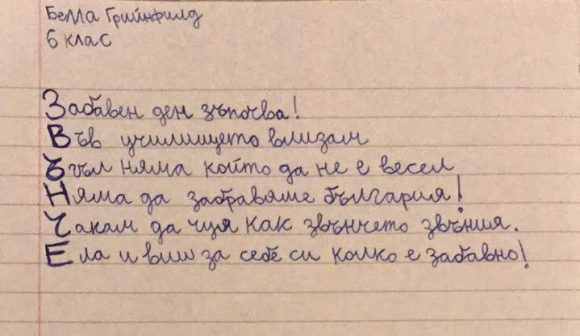 Белла Грийнфилд
6 клас
Забавен ден зъпочва!
Във училището влизам
Ъгъл няма който да не е весел
Няма да забравяме българия!
Чакам да чуя как звънчето звъния.
Ела и виш за себе си колко е забавно!